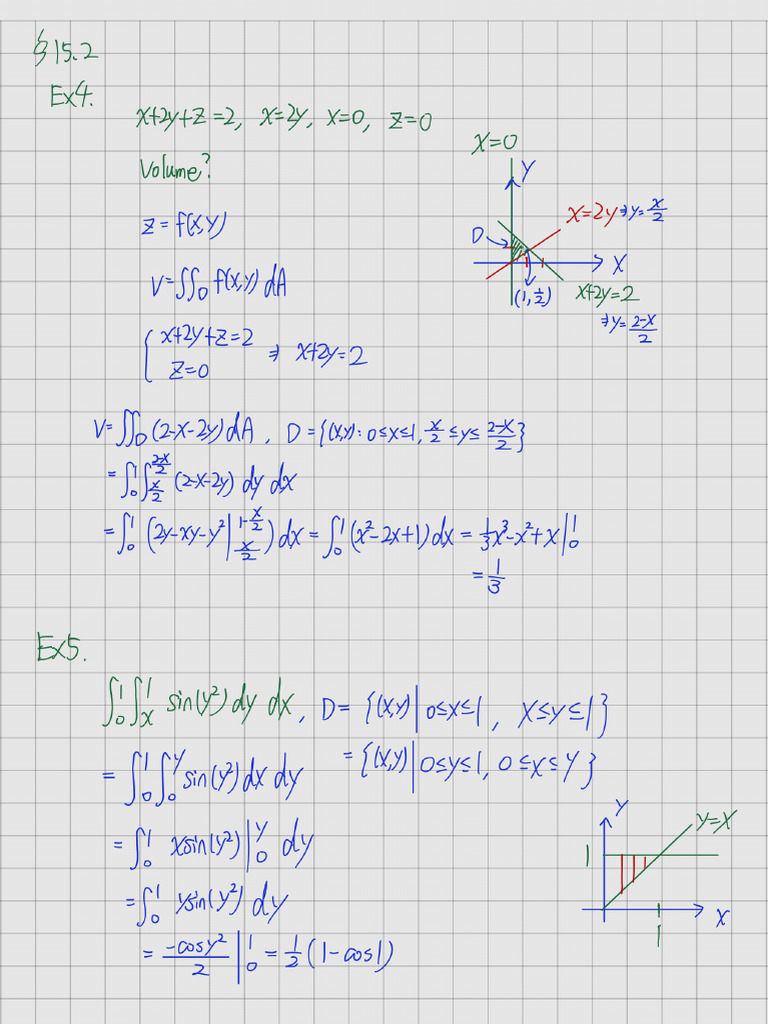 §15.2
Ex4.
x+2y+z=2, x=2y, x=0, z=0
Volume?
z=f(x,y)
V=∬_D f(x,y) dA
{ x+2y+z=2
z=0 ⇒ x+2y=2
x=0
Y
x=2y ⇒ y=x/2
D
X
(1,1/2)
x+2y=2
⇒ y=(2-x)/2
V=∬_D (2-x-2y) dA, D={(x,y): 0≤x≤1, x/2≤y≤(2-x)/2}
=∫_0^1 ∫_{x/2}^{(2-x)/2} (2-x-2y) dy dx
=∫_0^1 (2y-xy-y²|_{x/2}^{1-x/2}) dx = ∫_0^1 (x²-2x+1) dx = 1/3 x³-x²+x|_0^1
=1/3
Ex5.
∫_0^1 ∫_x^1 sin(y²) dy dx, D= {(x,y)|0≤x≤1, x≤y≤1}
= ∫_0^1 ∫_0^y sin(y²) dx dy
= {(x,y)|0≤y≤1, 0≤x≤y}
= ∫_0^1 xsin(y²)|_0^y dy
= ∫_0^1 ysin(y²) dy
= -cosy²/2|_0^1 = 1/2 (1-cos1)
Y
y=x
1
X
1